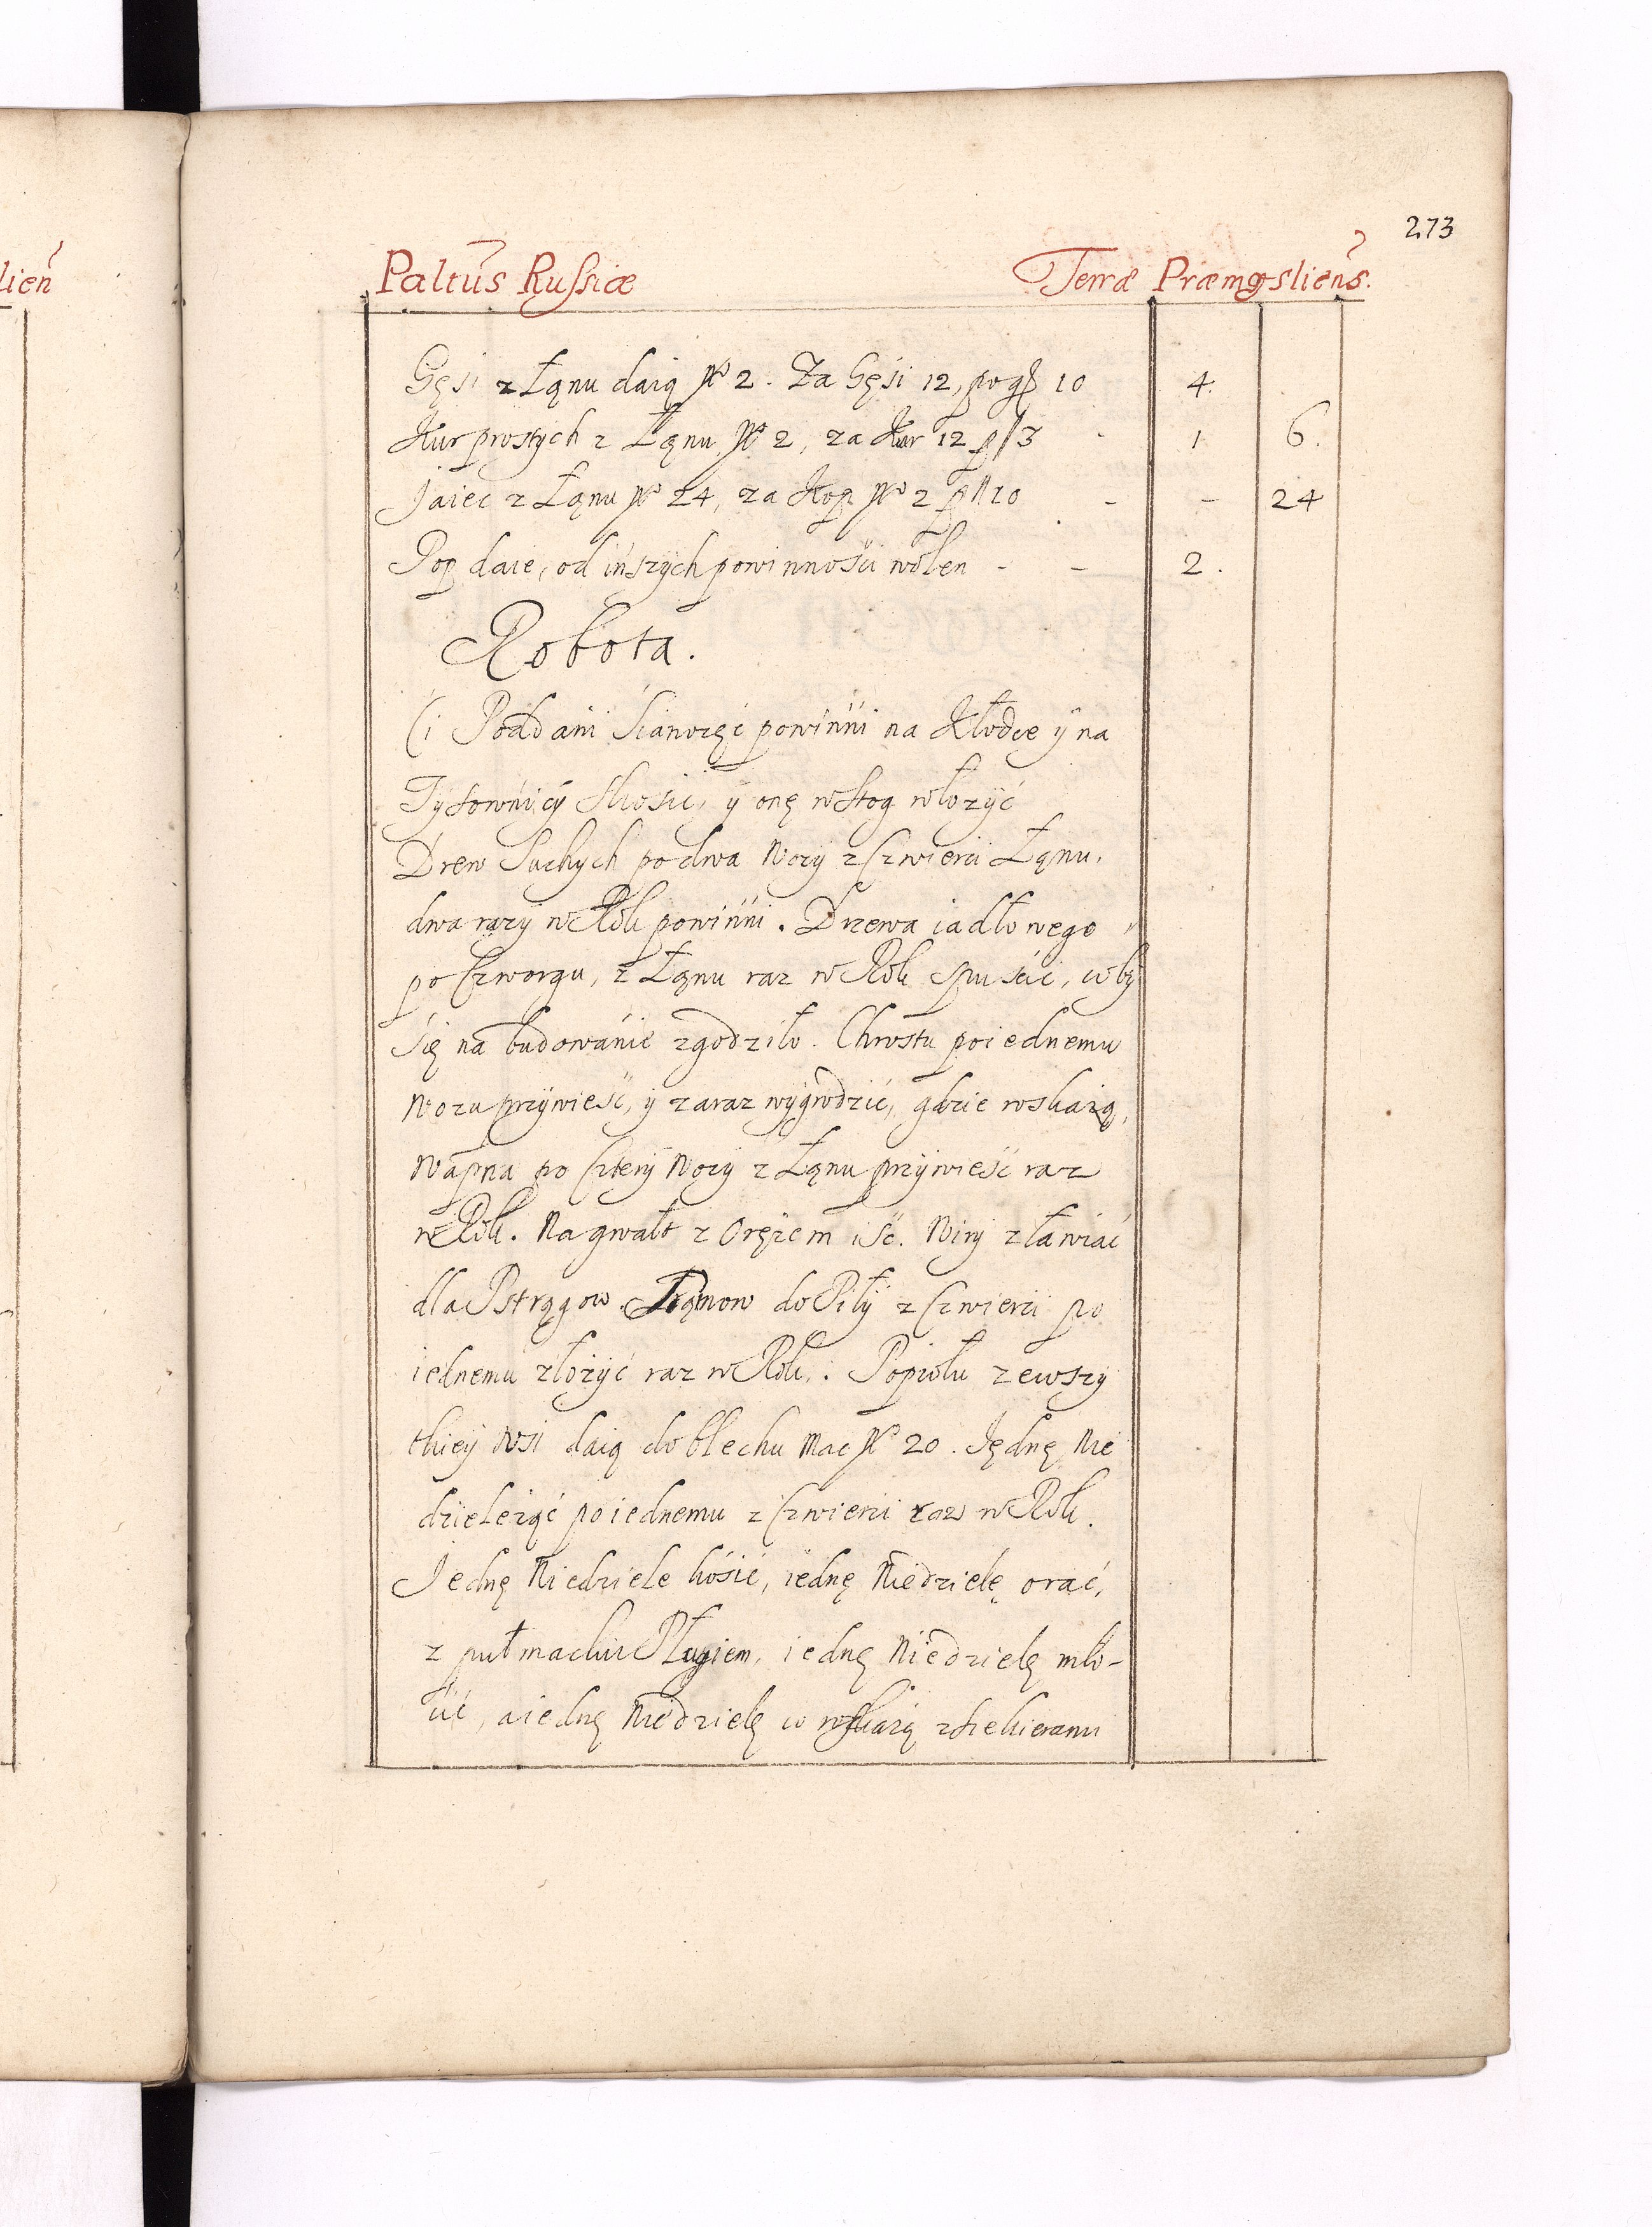 273
lień
Paltũs Russiæ Terræ Præmysliens.
Gęsi z Łąnu daią No 2. Za Gęsi 12, po gr 10 4.
Kur prostych z Łąnu No 2, za Kur 12 p gr 3 - 1 6.
Jaiec z Łąnu No 24, za Kop No 2 p gr 10 - - 24
Pop daie, od inszych powinności wolen - - 2.
Robota.
Ci Poddani Sianożęć powinni na Kłodce ÿ na
Tysownicÿ skosić, ÿ onę w stog włożÿć
Drew Suchych po dwa Wozÿ z Czwierci Łąnu.
dwa razÿ w Rok powinni. Drzewa iadłowego
po Czworgu, z Łąnu raz w Rok spuścić, coby
się na budowanie zgodziło. Chrostu poiednemu
Wozu przÿwieść, ÿ zaraz wÿgrodzić, gdzie wskażą,
Wapna po Czterÿ Wozÿ z Łąnu przÿwieść raz
w Rok. Na gwałt z Orężem iść. Wirÿ zławiać
dla Pstrągow Tramow do Piłÿ z Czwierci po
iednemu złożÿć raz w Rok. Popiołu ze wszÿ
tkieÿ Wsi daią do blechu Mac No 20. Jednę Nie
dziele żąć poiednemu z Czwierci raz w Rok.
Jednę Niedziele kosić, iednę Niedzielę orać,
z pułmackiē Pługiem, iednę Niedzielę mło-
cić, a iednę Niedzielę co wskażą z siekierami